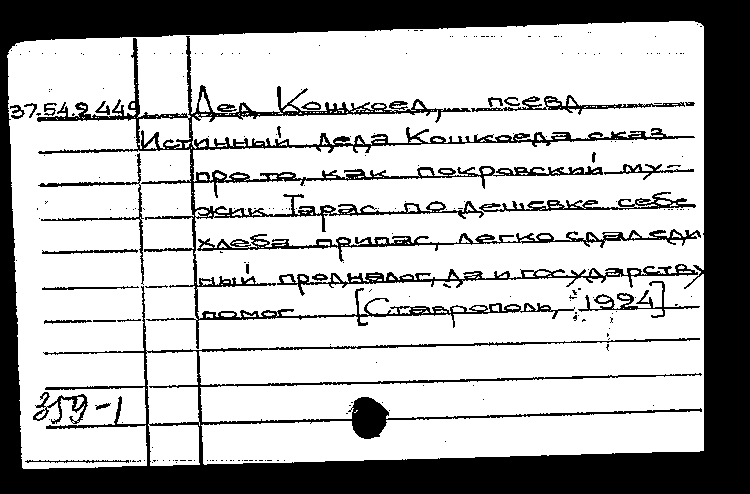 37.54.2.449. Дед Кошкоед, псевд
Истинный деда Кошкоеда сказ
про то, как покровский му-
жик Тарас по дешевке себе
хлеба припас, легко сдал еди
ный продналог, да и государству
помог. [Ставрополь, 1924].
359-1